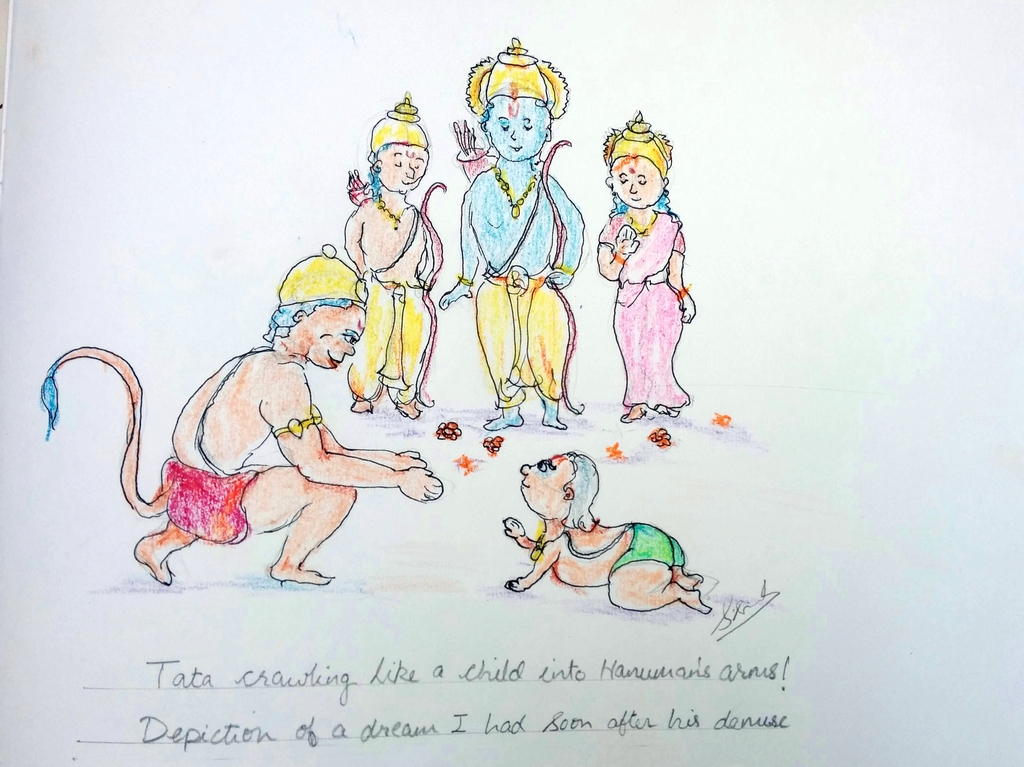 Tata crawling like a child into Hanuman's arms!
Depiction of a dream I had soon after his demise